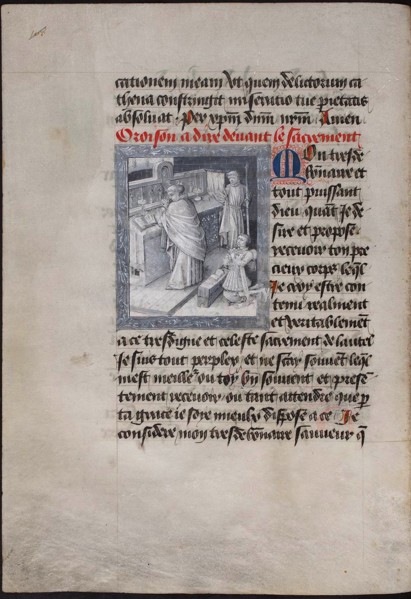 cationem meam Vt quem delictorum ca
thena constringit miseratio tue pietatis
absoluat. Per xpm dnm nrm Amen
Oroison a dire deuant le sacrement
Mon tresde
bonaire et
tout puissant
dieu quāt Je de
sire et propose
receuoir ton pre
cieux corps leql
Je croy estre con
tenu realment
et veritablemēt
a ce tresdigne et celeste sacrement de lautel
Je suis tout perplex et ne scay souuēt leql
mest meilleʳ ou toy bn souuent et presē
tement receuoir ou tant attendre que p
ta grace ie soye mieulx dispose a ce Je
considere mon tresdebonnaire sauueur q̄